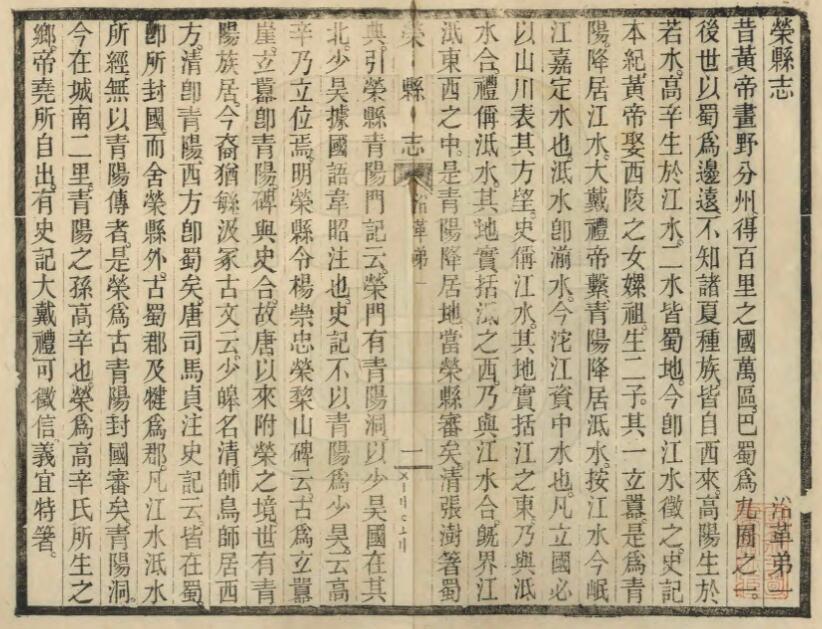 榮縣志　沿革弟一
昔黃帝畫野分州得百里之國萬區巴蜀爲九囿之一
後世以蜀爲邊遠不知諸夏種族皆自西來高陽生於
若水高辛生於江水二水皆蜀地今卽江水徵之史記
本紀黃帝娶西陵之女嫘祖生二子其一玄囂是爲靑
陽降居江水大戴禮帝繫靑陽降居泜水按江水今岷
江嘉定水也泜水卽湔水今沱江資中水也凡立國必
以山川表其方望史偁江水其地實括江之東乃與泜
水合禮稱泜水其地實括泜之西乃與江水合旣界江
泜東西之中是靑陽降居地當榮縣審矣淸張澍箸蜀
榮縣志　沿革弟一　一
典引榮縣靑陽門記云榮門有靑陽洞以少昊國在其
北少昊據國語韋昭注也史記不以靑陽爲少昊云高
辛乃立位焉明榮縣令楊崇忠榮黎山碑云古爲玄囂
崖立囂卽靑陽碑與史合故唐以來附榮之境世有靑
陽族居今裔猶緐汲冢古文云少皞名淸師鳥師居西
方淸卽靑陽西方卽蜀矣唐司馬貞注史記云皆在蜀
卽所封國而舍榮縣外古蜀郡及犍爲郡凡江水泜水
所經無以靑陽傳者是榮爲古靑陽封國審矣靑陽洞
今在城南二里靑陽之孫高辛也榮爲高辛氏所生之
鄉帝堯所自出有史記大戴禮可徵信義宜特箸